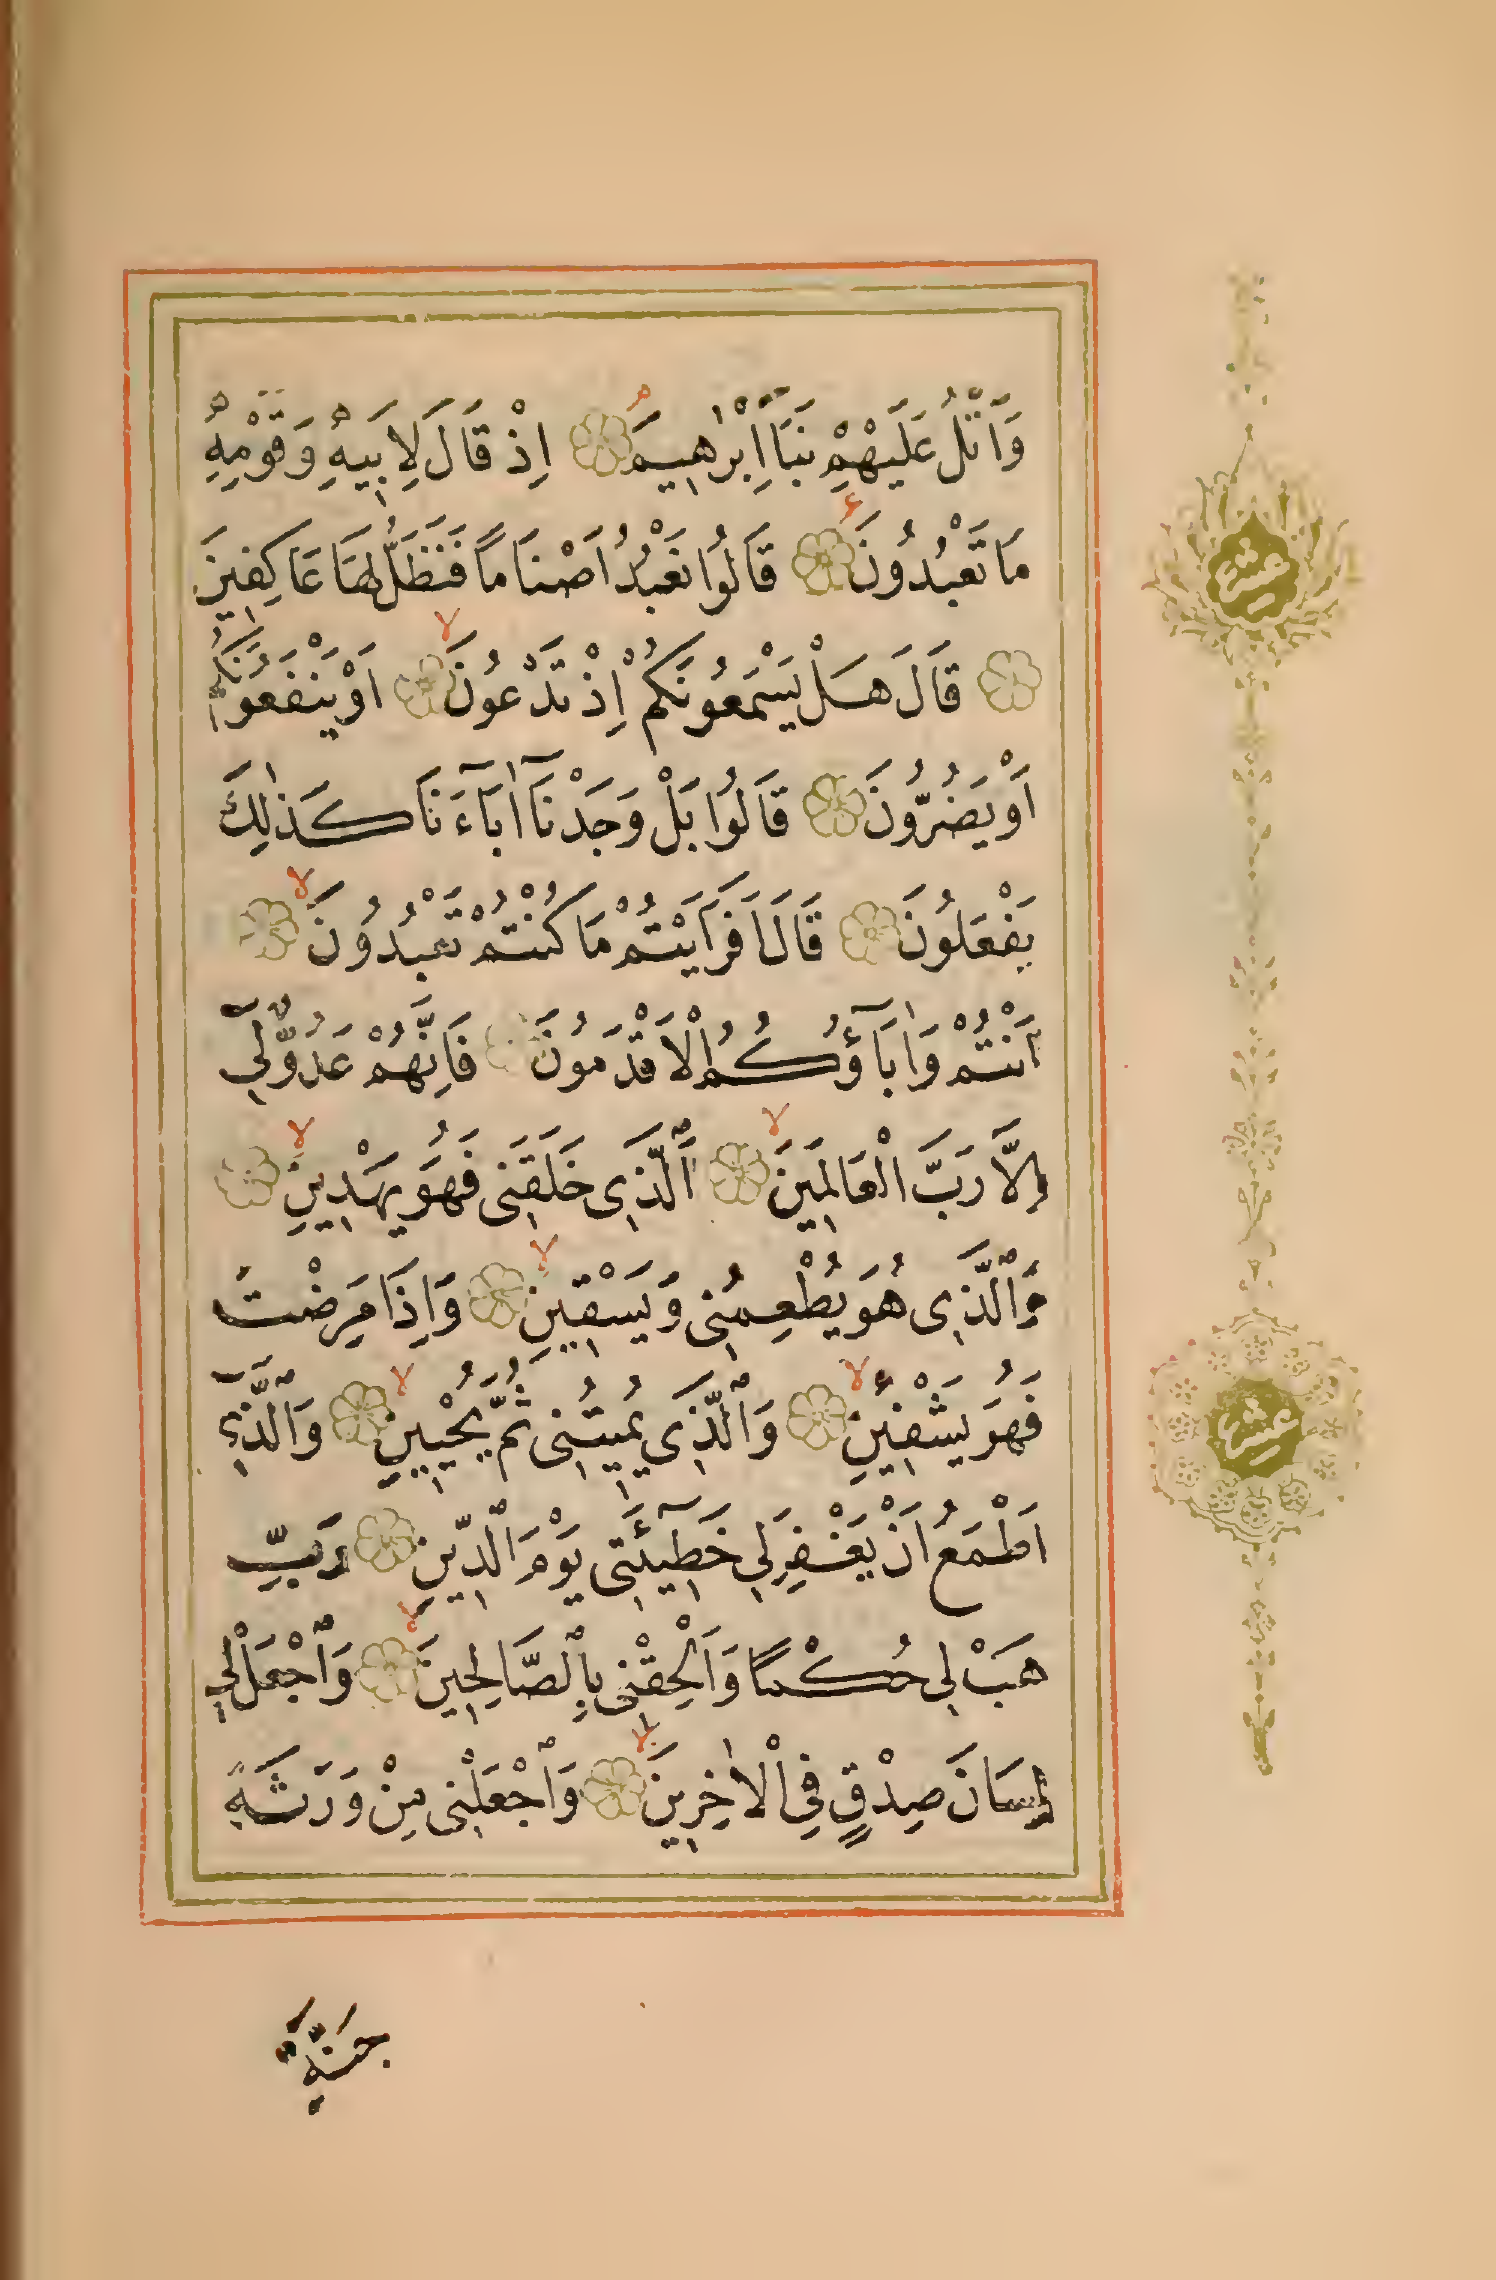 وَاتْلُ عَلَيْهِمْ نَبَاَ اِبْرٰهِيمَ اِذْ قَالَ لِاَبِيهِ وَقَوْمِهِ
مَا تَعْبُدُونَ قَالُوا نَعْبُدُ اَصْنَامًا فَنَظَلُّ لَهَا عَاكِفِينَ
قَالَ هَلْ يَسْمَعُونَكُمْ اِذْ تَدْعُونَ اَوْ يَنْفَعُونَكُمْ
اَوْ يَضُرُّونَ قَالُوا بَلْ وَجَدْنَٓا اٰبَٓاءَنَا كَذٰلِكَ
يَفْعَلُونَ قَالَ اَفَرَاَيْتُمْ مَا كُنْتُمْ تَعْبُدُونَ
اَنْتُمْ وَاٰبَٓاؤُكُمُ الْاَقْدَمُونَ فَاِنَّهُمْ عَدُوٌّ لِٓى
اِلَّا رَبَّ الْعَالَمِينَ اَلَّذِى خَلَقَنِى فَهُوَ يَهْدِينِ
وَالَّذِى هُوَ يُطْعِمُنِى وَيَسْقِينِ وَاِذَا مَرِضْتُ
فَهُوَ يَشْفِينِ وَالَّذِى يُمِيتُنِى ثُمَّ يُحْيِينِ وَالَّذِٓى
اَطْمَعُ اَنْ يَغْفِرَ لِى خَطِٓيـَٔتِى يَوْمَ الدِّينِ رَبِّ
هَبْ لِى حُكْمًا وَاَلْحِقْنِى بِالصَّالِحِينَ وَاجْعَلْ لِى
لِسَانَ صِدْقٍ فِى الْاٰخِرِينَ وَاجْعَلْنِى مِنْ وَرَثَةِ
جَنَّةِ
عشر
عشر